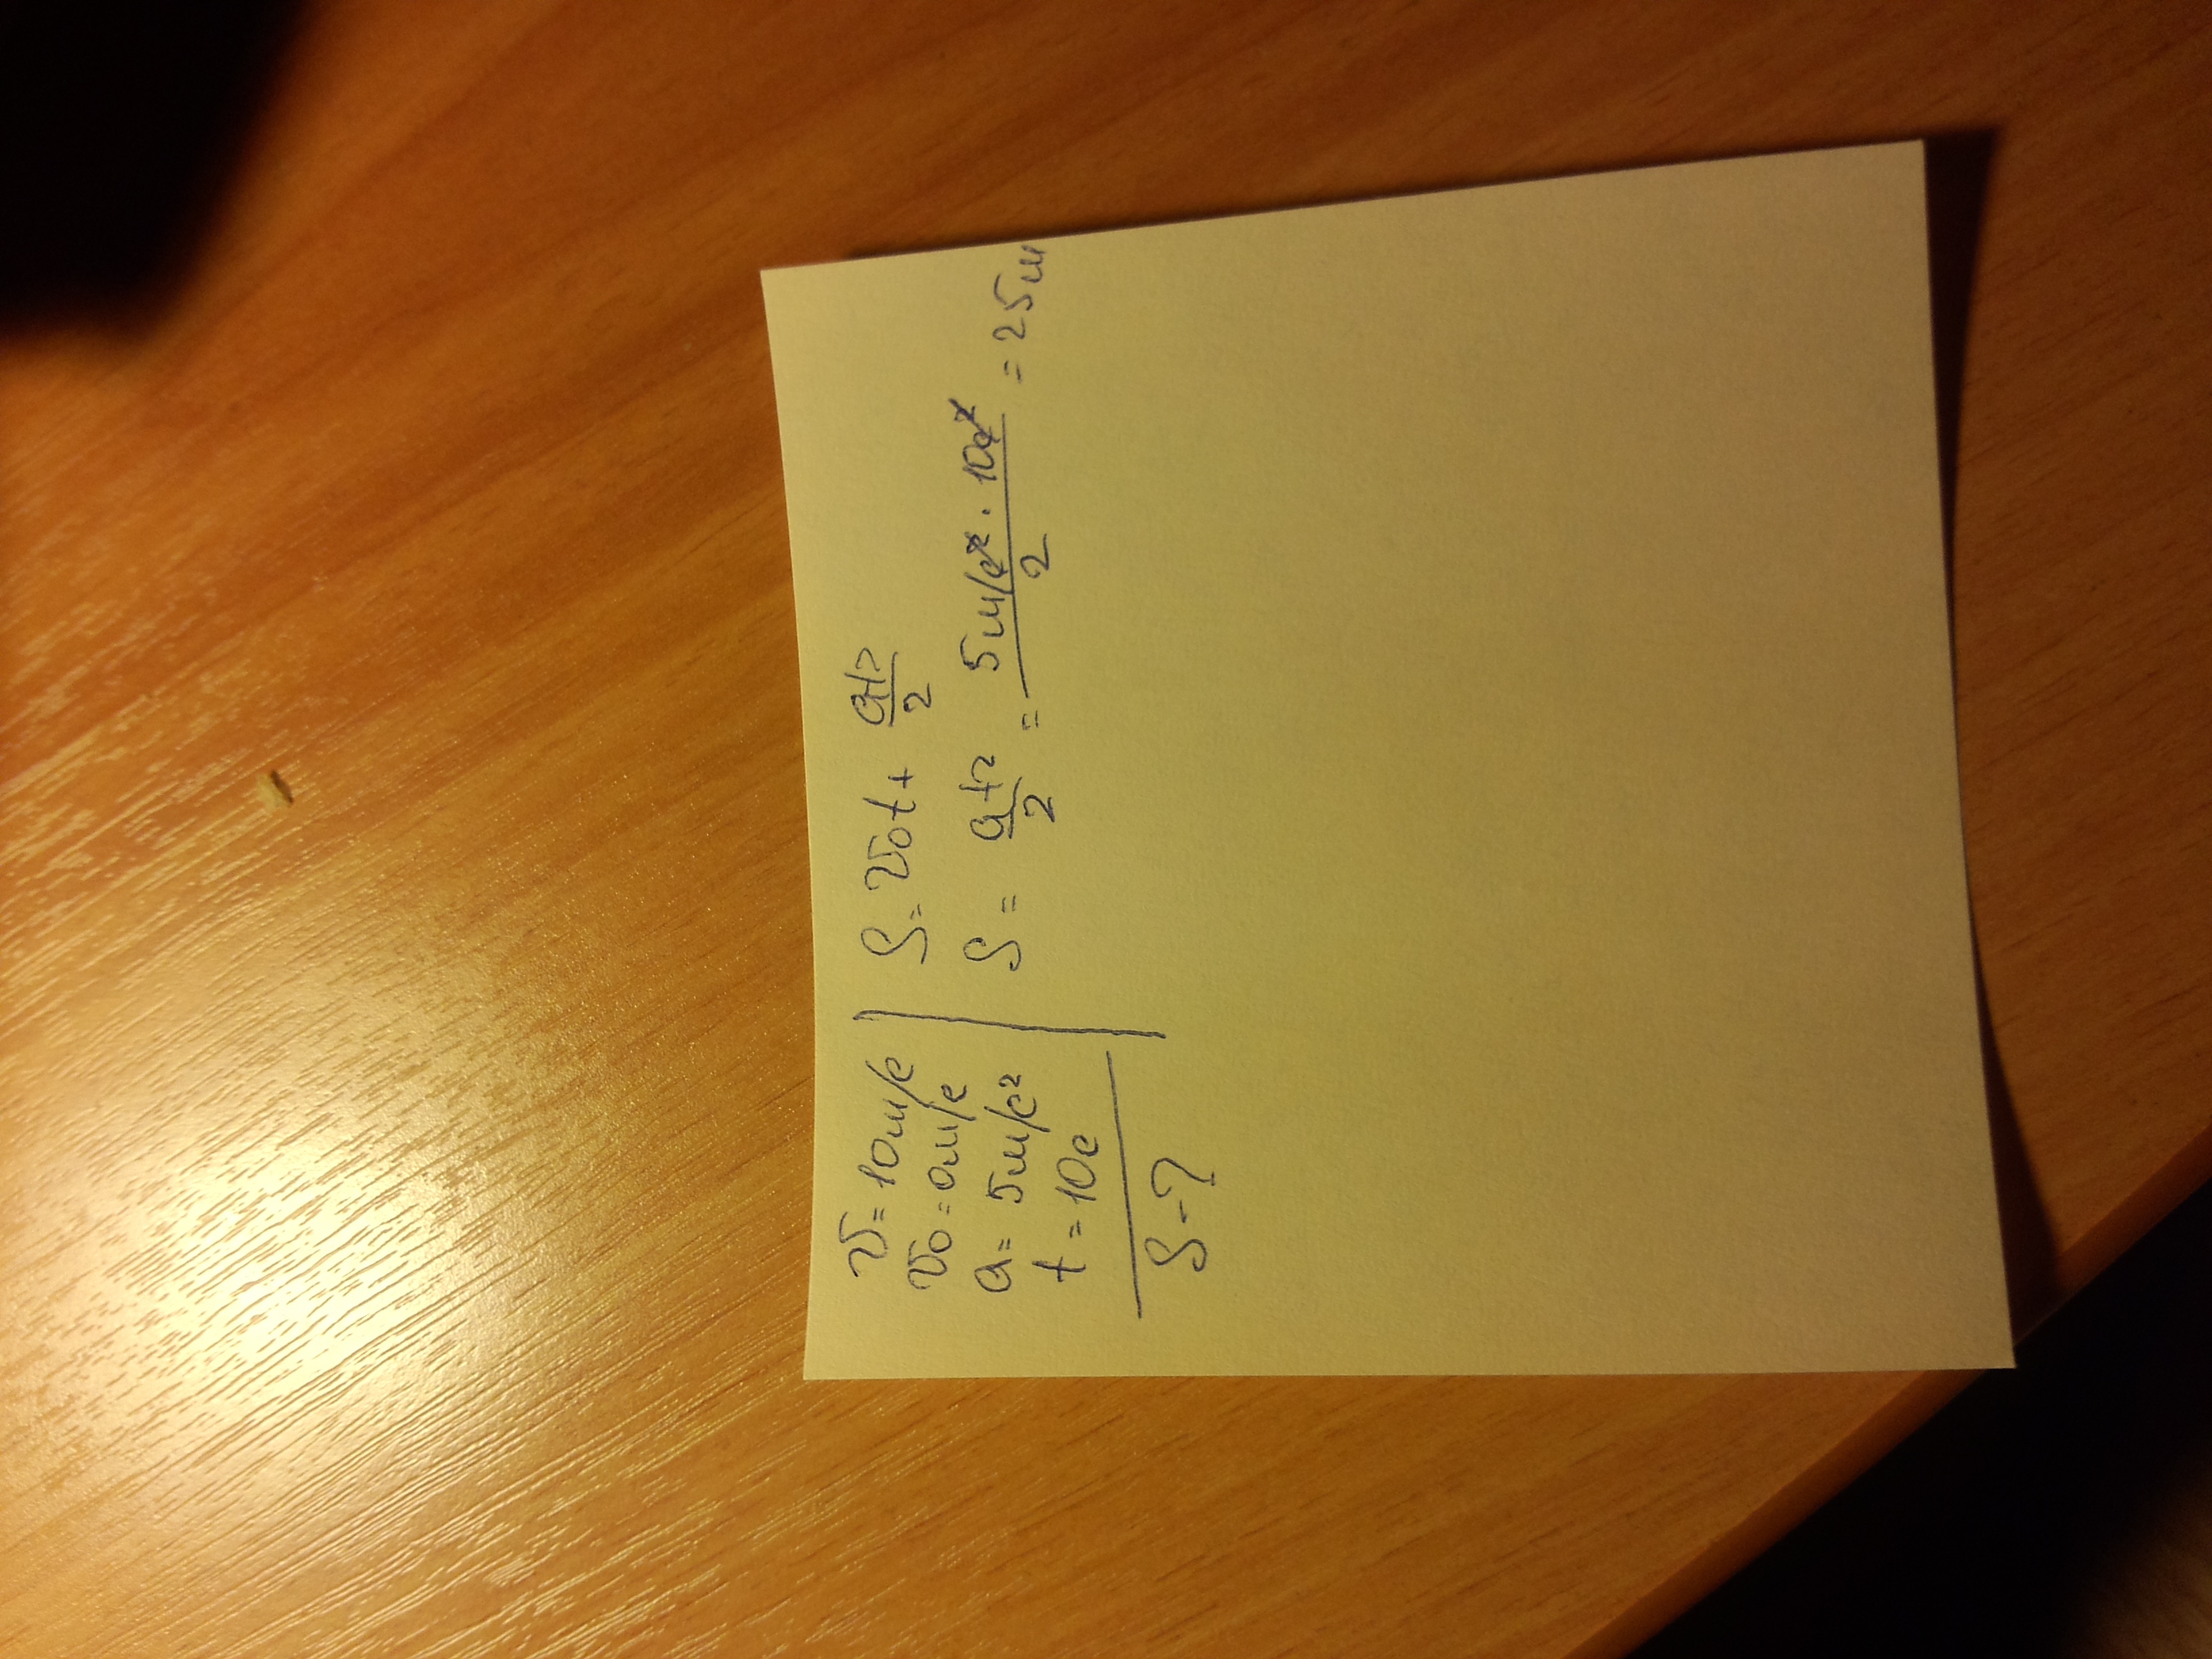 v = 10 м/с
v₀ = 0 м/с
a = 5 м/с²
t = 10с
S - ?
S = v₀t + at²/2
S = at²/2 = 5 м/с² · 10с²/2 = 25 м